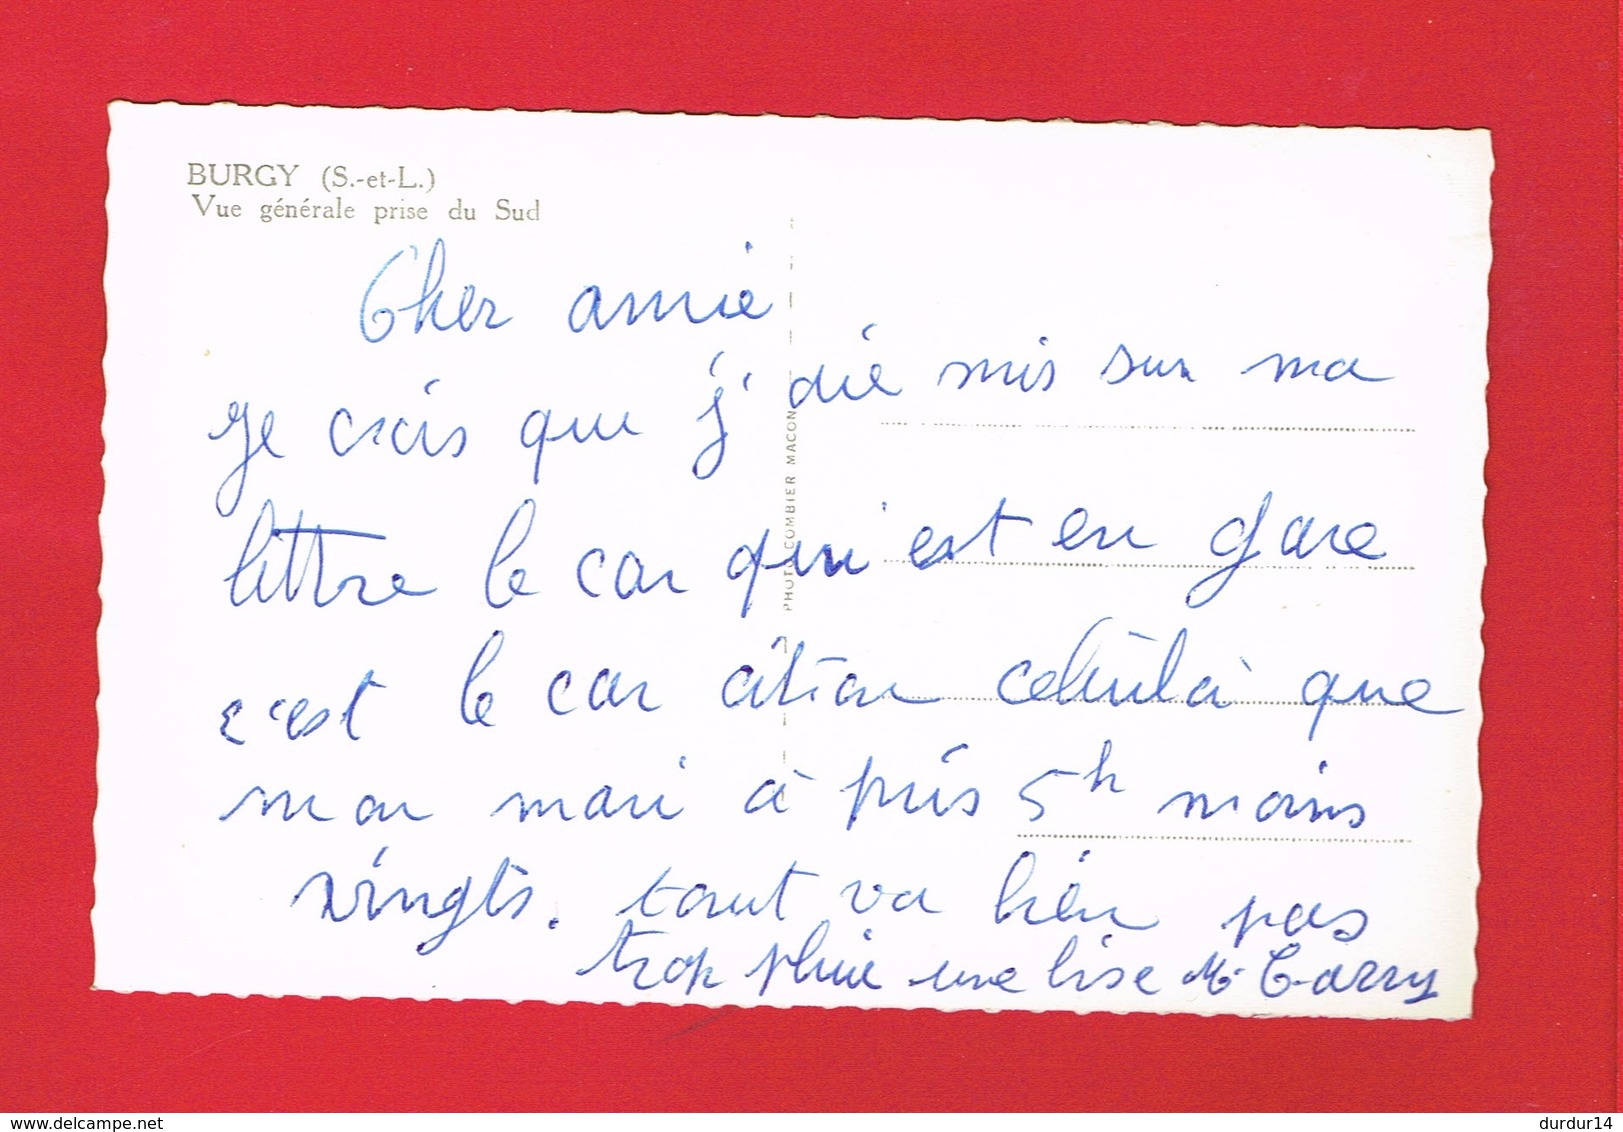 BURGY (S.-et-L.)
Vue générale prise du Sud
Cher amie
je crois que j' die mis sur ma
littre le car qui est en gare
c'est le car citron celuila que
mon mari à pris 5h moins
vingts. tout va bien pas
trop pluie une bise M
PHOTO COMBIER MACON
www.delcampe.net
durdur14